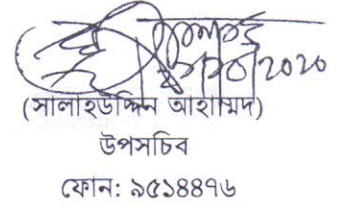 ২০২০
(সালাহউদ্দিন আহাম্মদ)
উপসচিব
ফোন: ৯৫১৪৪৭৬